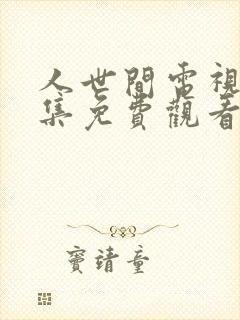 人世間電視
集免費觀看
竇靖童